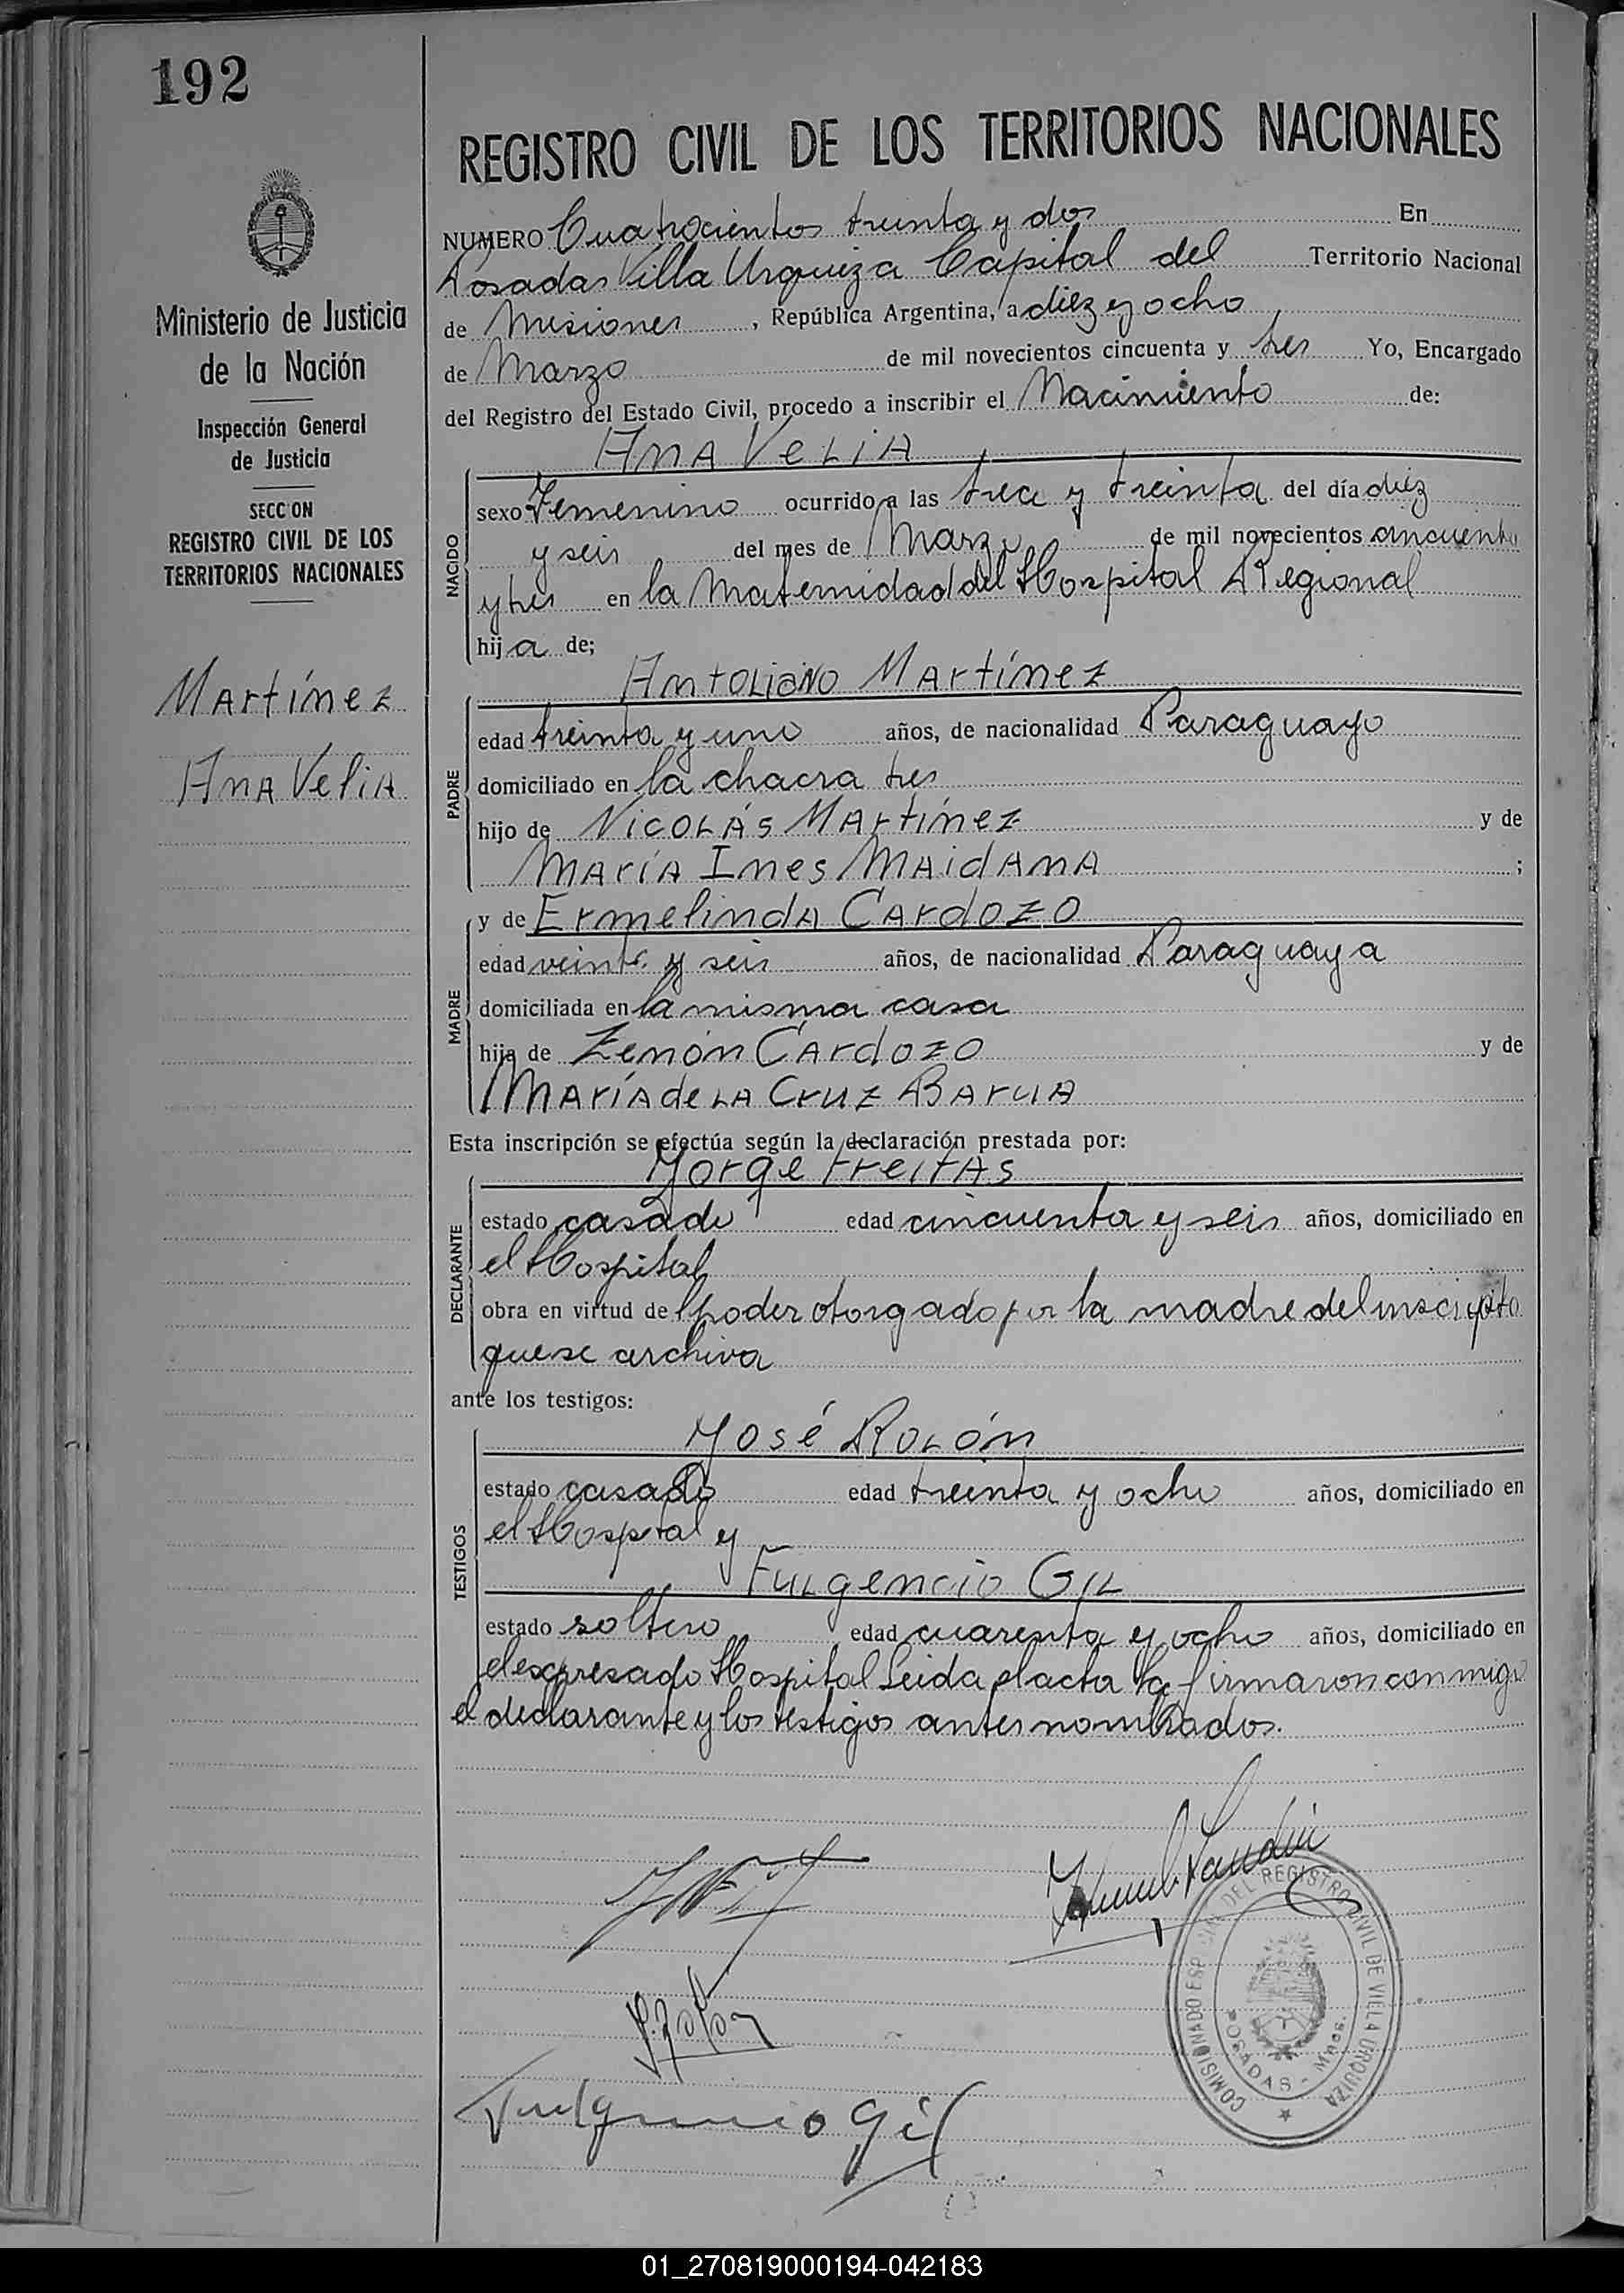 192
REGISTRO CIVIL DE LOS TERRITORIOS NACIONALES
Ministerio de Justicia
de la Nación
Inspección General
de Justicia
SECCION
REGISTRO CIVIL DE LOS
TERRITORIOS NACIONALES
Martínez
Ana Velia
NUMERO Cuatrocientos treinta y dos En
Posadas Villa Urquiza Capital del Territorio Nacional
de Misiones, República Argentina, a diez y ocho
de Marzo de mil novecientos cincuenta y tres Yo, Encargado
del Registro del Estado Civil, procedo a inscribir el Nacimiento de:
Ana Velia
NACIDO
sexo Femenino ocurrido a las trece y treinta del día diez
y seis del mes de Marzo de mil novecientos cincuenta
y tres en la Maternidad del Hospital Regional
hija de;
Antoliano Martínez
PADRE
edad treinta y uno años, de nacionalidad Paraguayo
domiciliado en la chacra tres
hijo de Nicolás Martínez y de
María Ines Maidana ;
y de Ermelinda Cardozo
MADRE
edad veinte y seis años, de nacionalidad Paraguaya
domiciliada en la misma casa
hija de Zenón Cardozo y de
María de la Cruz Barua
Esta inscripción se efectúa según la declaración prestada por:
Jorge Freitas
DECLARANTE
estado casado edad cincuenta y seis años, domiciliado en
el Hospital
obra en virtud del poder otorgado por la madre del inscripto
que se archiva
ante los testigos:
José Rolón
TESTIGOS
estado casado edad treinta y ocho años, domiciliado en
el Hospital y
Fulgencio Gil
estado soltero edad cuarenta y ocho años, domiciliado en
el expresado Hospital Leida el acta la firmaron conmigo
el declarante y los testigos antes nombrados.
J. Rolon
Fulgencio Gil
COMISIONADO ESPECIAL DEL REGISTRO CIVIL DE VILLA URQUIZA
POSADAS - Mnes.
01_270819000194-042183